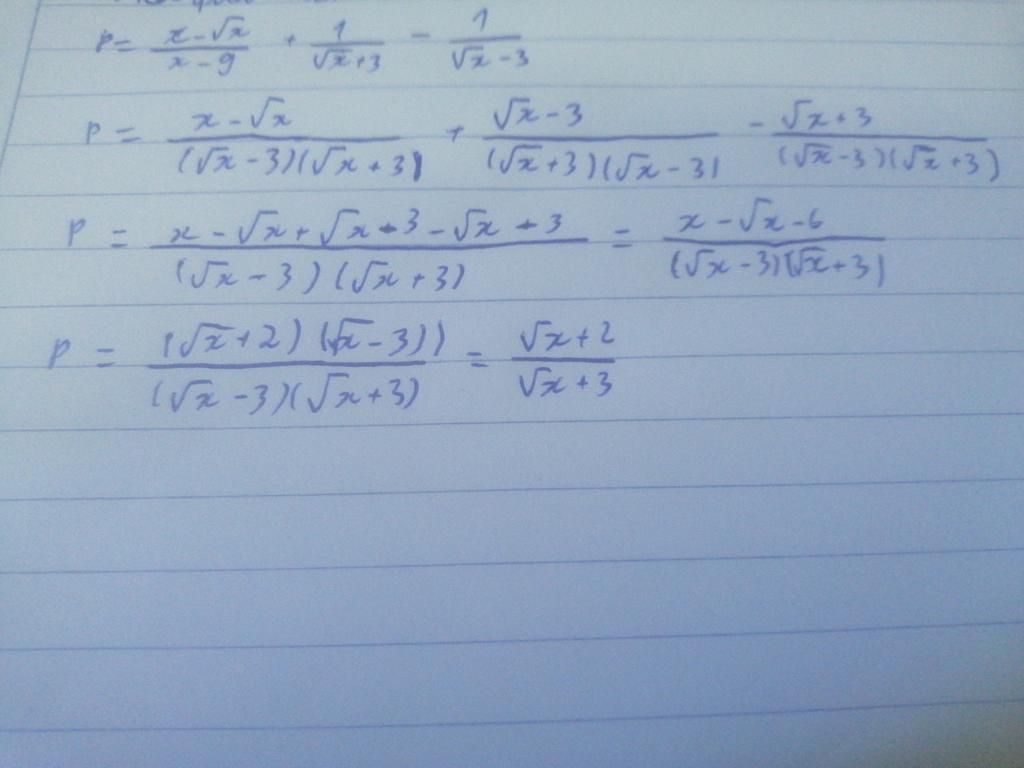 P = (x - √x)/(x - 9) + 1/(√x + 3) - 1/(√x - 3)
P = (x - √x)/((√x - 3)(√x + 3)) + (√x - 3)/((√x + 3)(√x - 3)) - (√x + 3)/((√x - 3)(√x + 3))
P = (x - √x + √x - 3 - √x - 3)/((√x - 3)(√x + 3)) = (x - √x - 6)/((√x - 3)(√x + 3))
P = ((√x + 2)(√x - 3))/((√x - 3)(√x + 3)) = (√x + 2)/(√x + 3)